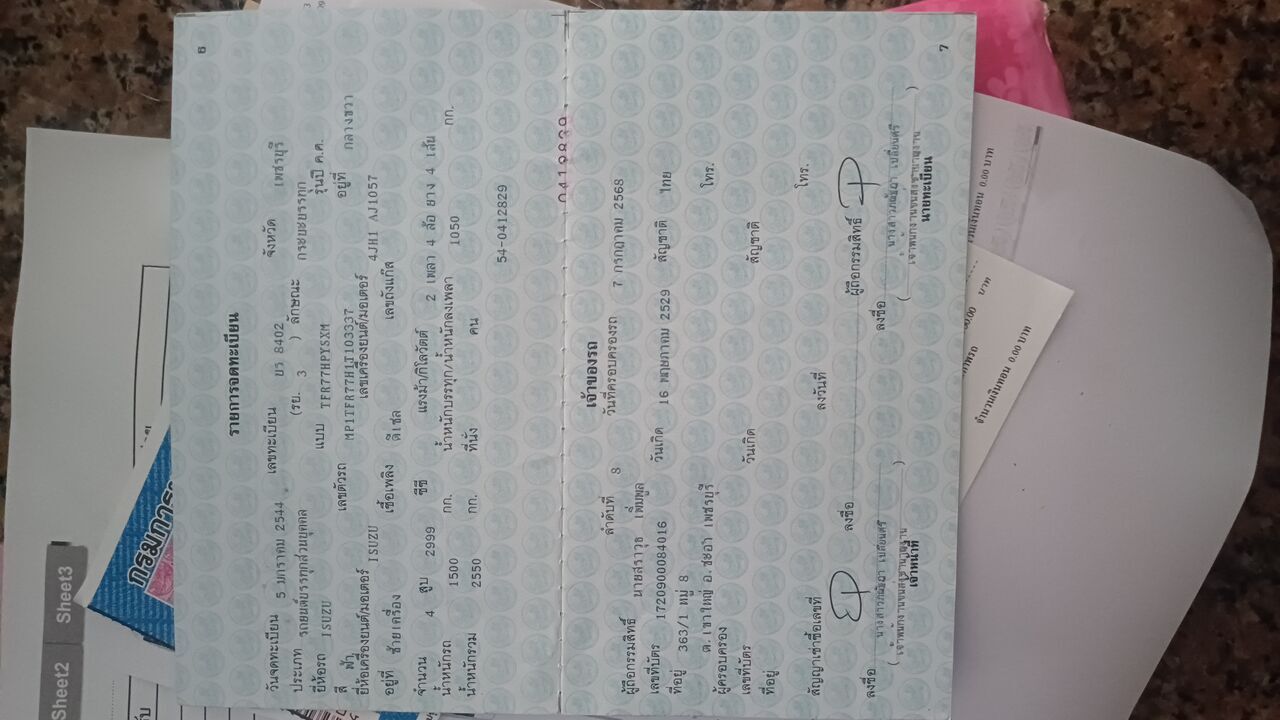 6
รายการจดทะเบียน
วันจดทะเบียน 5 มกราคม 2544 เลขทะเบียน ยร 8402 จังหวัด เพชรบุรี
ประเภท รถยนต์บรรทุกส่วนบุคคล (รย. 3 ) ลักษณะ กระบะบรรทุก
ยี่ห้อรถ ISUZU แบบ TFR77HPYSXM รุ่นปี ค.ศ.
สี ฟ้า เลขตัวรถ MP1TFR77H1T103337 อยู่ที่ กลางขวา
ยี่ห้อเครื่องยนต์/มอเตอร์ ISUZU เลขเครื่องยนต์/มอเตอร์ 4JH1 AJ1057
อยู่ที่ ซ้ายเครื่อง เชื้อเพลิง ดีเซล เลขถังแก๊ส
จำนวน 4 สูบ 2999 ซีซี แรงม้า/กิโลวัตต์ 2 เพลา 4 ล้อ ยาง 4 เส้น
น้ำหนักรถ 1500 กก. น้ำหนักบรรทุก/น้ำหนักลงเพลา 1050 กก.
น้ำหนักรวม 2550 กก. ที่นั่ง คน
54-0412829
เจ้าของรถ
ลำดับที่ 8 วันที่ครอบครองรถ 7 กรกฎาคม 2568
ผู้ถือกรรมสิทธิ์ นายสราวุธ เพิ่มพูล
เลขที่บัตร 1720900084016 วันเกิด 16 พฤษภาคม 2529 สัญชาติ ไทย
ที่อยู่ 363/1 หมู่ 8
ต.เขาใหญ่ อ.ชะอำ เพชรบุรี โทร.
ผู้ครอบครอง
เลขที่บัตร วันเกิด สัญชาติ
ที่อยู่
โทร.
สัญญาเช่าซื้อเลขที่ ลงวันที่
ลงชื่อ ผู้ถือกรรมสิทธิ์
ลงชื่อ ลงชื่อ
เจ้าหน้าที่ นายทะเบียน
7
Sheet2 Sheet3
กรมการ
จำนวนเงินทอน 0.00 บาท
บาท
เงินทอน 0.00 บาท